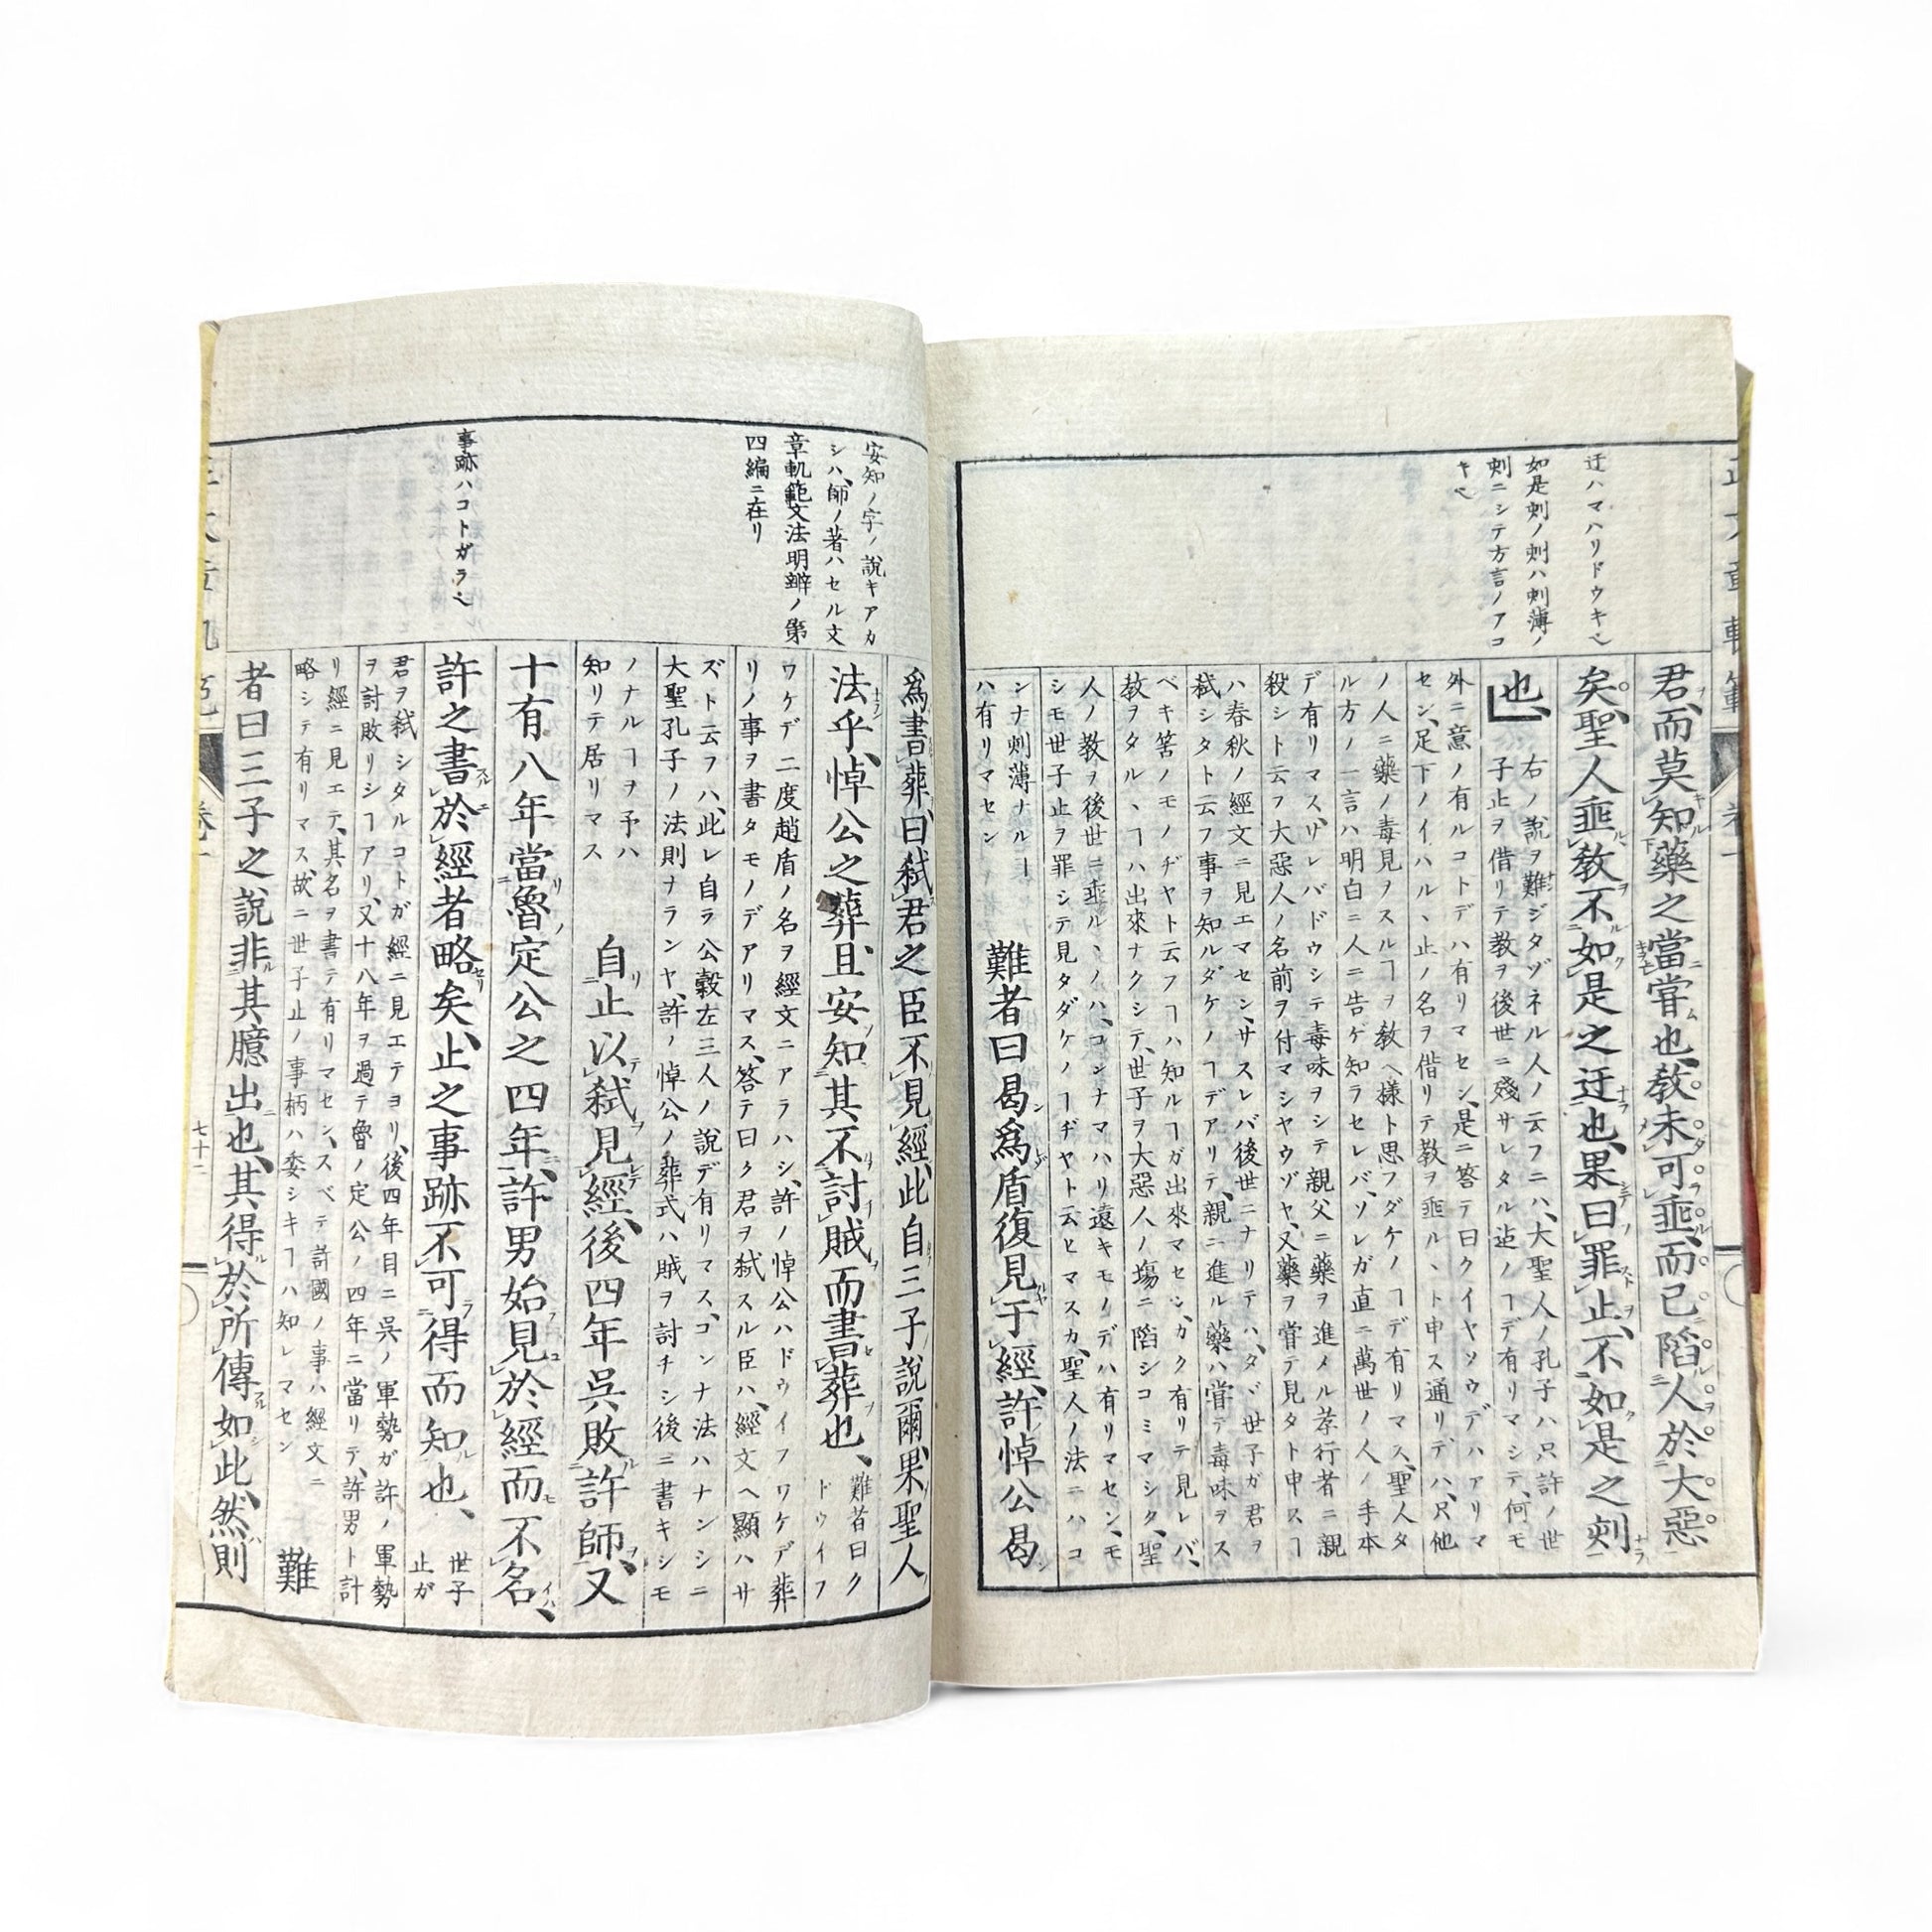 迂ハマハリドウキヘ
如是刻ノ刻ハ刻薄ノ
刻ニシテ方言ノアコ
キヘ
君、而莫知藥之當甞也、教未可垂、而已陷人於大惡
矣、聖人垂教不如是之迂也、果曰罪止、不如是之刻
也、
右ノ說ヲ難ジタヅネル人ノ云フニハ、大聖人ノ孔子ハ只許ノ世
子止ヲ借リテ教ヲ後世ニ殘サレタル迠ノヿデ有リマシテ、何モ
外ニ意ノ有ルコトデハ有リマセン、是ニ答テ曰クイヤソウデハアリマ
セン、足下ノイハル丶止ノ名ヲ借リテ教ヲ垂ル丶ト申ス通リデハ、只他
ノ人ニ藥ノ毒見ヲスルヿヲ敎ヘ様ト思フダケノヿデ有リマス、聖人タ
ル方ノ一言ハ明白ニ人ニ告ゲ知ラセレバ、ソレガ直ニ萬世ノ人ノ手本
デ有リマス、サレバドウシテ毒味ヲシテ親父ニ藥ヲ進メル孝行者ニ親
殺シト云フ大惡人ノ名前ヲ付マシヤウゾヤ、又藥ヲ甞テ見タト申スヿ
ハ春秋ノ經文ニ見エマセン、サスレバ後世ニナリテハ、タヾ世子ガ君ヲ
弑シタト云フ事ヲ知ルダケノヿデアリテ、親ニ進ル藥ハ甞テ毒味ヲス
ベキ筈ノモノヂヤト云フヿハ知ルヿガ出來マセン、カク有リテ見レバ、
教ヲタル丶ヿハ出來ナクシテ、世子ヲ大惡人ノ塲ニ陷シコミマシタ、聖
人ノ教ヲ後世ニ垂ル丶ノハ、コンナマハリ遠キモノデハ有リマセン、モ
シモ世子止ヲ罪シテ見タダケノヿヂヤト云ヒマスカ、聖人ノ法ニハコ
ンナ刻薄ナルヿ
ハ有リマセン
難者曰曷爲盾復見于經、許悼公曷
安知ノ字ノ說キアカ
シハ、師ノ著ハセル文
章軌範文法明辨ノ第
四編ニ在リ
事跡ハコトガラヘ
爲書葬、曰弑君之臣不見經、此自三子說爾、果聖人
法乎、悼公之葬、且安知其不討賊而書葬也、
難者曰ク
ドウイフ
ワケデ二度趙盾ノ名ヲ經文ニアラハシ、許ノ悼公ハドウイフワケデ葬
リノ事ヲ書タモノデアリマス、答テ曰ク君ヲ弑スル臣ハ、經文ヘ顯ハサ
ズト云フハ、此レ自ラ公穀左三人ノ說デ有リマス、コンナ法ハナンシニ
大聖孔子ノ法則ナランヤ、許ノ悼公ノ葬式ハ賊ヲ討チシ後ニ書キシモ
ノナルヿヲ予ハ
知リテ居リマス
自止以弑見經、後四年吳敗許師、又
十有八年當魯定公之四年、許男始見於經而不名、
許之書於經者略矣、止之事跡不可得而知也、
世子
止ガ
君ヲ弑シタルコトガ經ニ見エテヨリ、後四年目ニ吳ノ軍勢ガ許ノ軍勢
ヲ討敗リシヿアリ、又十八年ヲ過テ魯ノ定公ノ四年ニ當リテ、許男ト計
リ經ニ見エテ、其名ヲ書テ有リマセン、スベテ許國ノ事ハ經文ニ
略シテ有リマス、故ニ世子止ノ事柄ハ委シキヿハ知レマセン
難
者曰三子之說非其臆出也、其得於所傳如此、然則
七十二